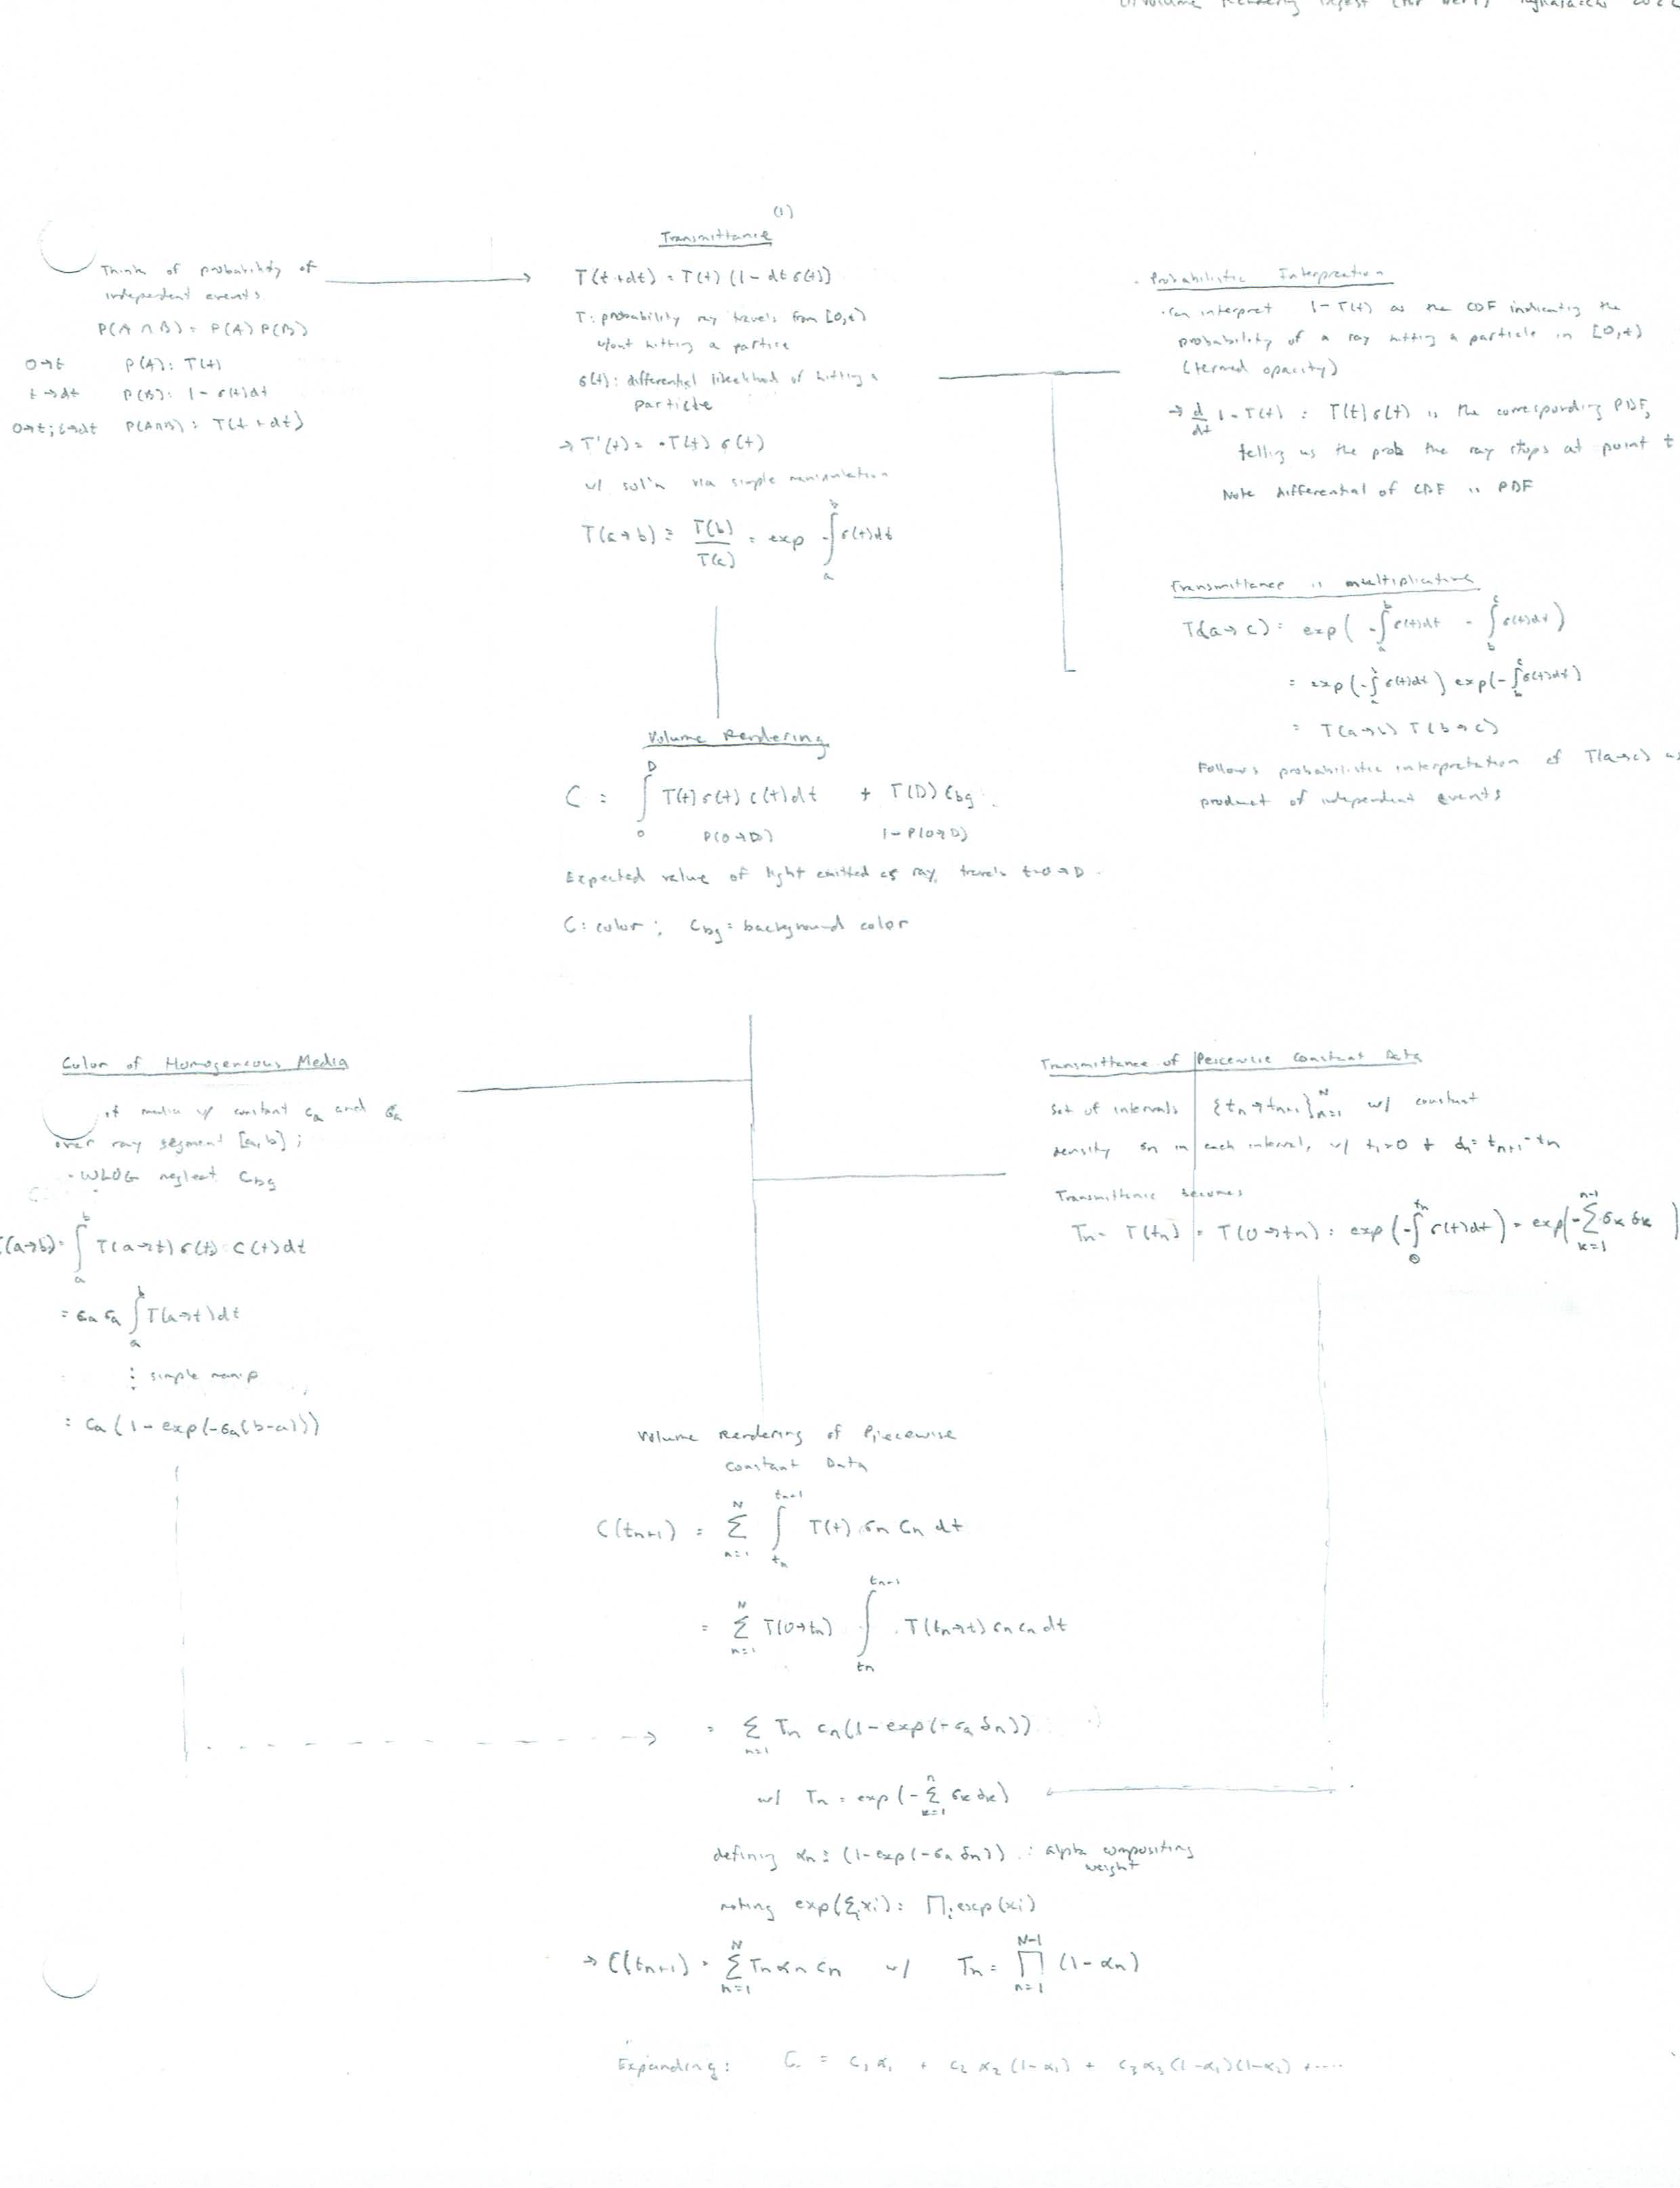 Volume Rendering Digest (for NeRF) Tagliasacchi 2022
(1)
Transmittance
Think of probability of
independent events
P(A ∩ B) = P(A) P(B)
0→t P(A): T(t)
t→dt P(B): 1 - σ(t)dt
0→t; t→dt P(A∩B) = T(t + dt)
T(t+dt) = T(t) (1 - dt σ(t))
T: probability ray travels from [0,t)
w/out hitting a partice
σ(t): differential likelihood of hitting a
particle
→ T'(t) = -T(t) σ(t)
w/ sol'n via simple manipulation
T(a→b) ≡ T(b)/T(a) = exp -∫_a^b σ(t)dt
· Probabilistic Interpreation
· Can interpret 1-T(t) as the CDF indicating the
probability of a ray hitting a particle in [0,t)
(termed opacity)
→ d/dt 1 - T(t) = T(t) σ(t) is the corresponding PDF,
telling us the prob the ray stops at point t
Note differential of CDF is PDF
Transmittance is multiplicative
T(a→c) = exp( -∫_a^b σ(t)dt - ∫_b^c σ(t)dt )
= exp(-∫_a^b σ(t)dt) exp(-∫_b^c σ(t)dt)
= T(a→b) T(b→c)
Follows probabilistic interpretation of T(a→c) as
product of independent events
Volume Rendering
C = ∫_0^D T(t) σ(t) c(t) dt + T(D) C_bg
P(0→D) 1 - P(0→D)
Expected value of light emitted as ray travels t=0→D.
C: color; C_bg = background color
Color of Homogeneous Media
of media w/ constant c_a and σ_a
over ray segment [a,b];
- WLOG neglect C_bg
C(a→b) = ∫_a^b T(a→t) σ(t) c(t)dt
= σ_a c_a ∫_a^b T(a→t)dt
⋮ simple manip
= c_a (1 - exp(-σ_a(b-a)))
Transmittance of Peicewise Constant Data
Set of intervals {t_n→t_n+1}_{n=1}^N w/ constant
density σ_n in each interval, w/ t_1=0 + δ_n = t_n+1 - t_n
Transmittance becomes
T_n = T(t_n) = T(0→t_n) = exp(-∫_0^{t_n} σ(t)dt) = exp(-∑_{k=1}^{n-1} σ_k δ_k)
Volume Rendering of Piecewise
Constant Data
C(t_n+1) = ∑_{n=1}^N ∫_{t_n}^{t_n+1} T(t) σ_n c_n dt
= ∑_{n=1}^N T(0→t_n) ∫_{t_n}^{t_n+1} T(t_n→t) σ_n c_n dt
= ∑_{n=1} T_n c_n (1 - exp(-σ_n δ_n))
w/ T_n = exp(-∑_{k=1}^n σ_k δ_k)
defining α_n ≡ (1 - exp(-σ_n δ_n)) : alpha compositing
weight
noting exp(∑_i x_i) = ∏_i exp(x_i)
→ C(t_n+1) = ∑_{n=1}^N T_n α_n c_n w/ T_n = ∏_{n=1}^{N-1} (1 - α_n)
Expanding: C = c_1 α_1 + c_2 α_2 (1-α_1) + c_3 α_3 (1-α_1)(1-α_2) + ....